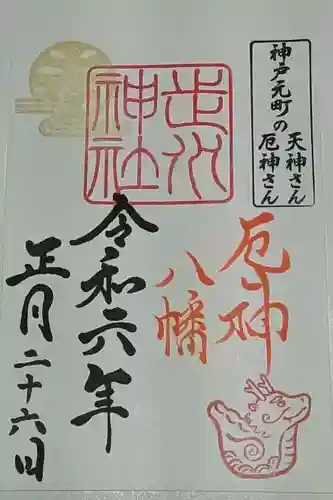 神戸元町の
天神さん
厄神さん
厄神
八幡
走水
神社
令和六年
正月二十六日